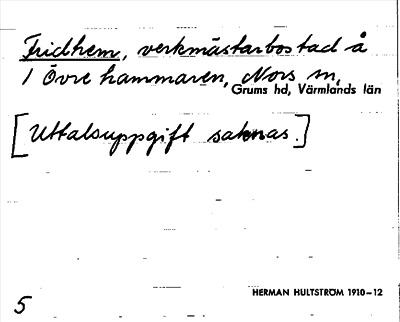 Fridhem, verkmästarbostad å
1 Övre hammaren, Nors sn,
Grums hd, Värmlands län
[Uttalsuppgift saknas.]
HERMAN HULTSTRÖM 1910–12
5